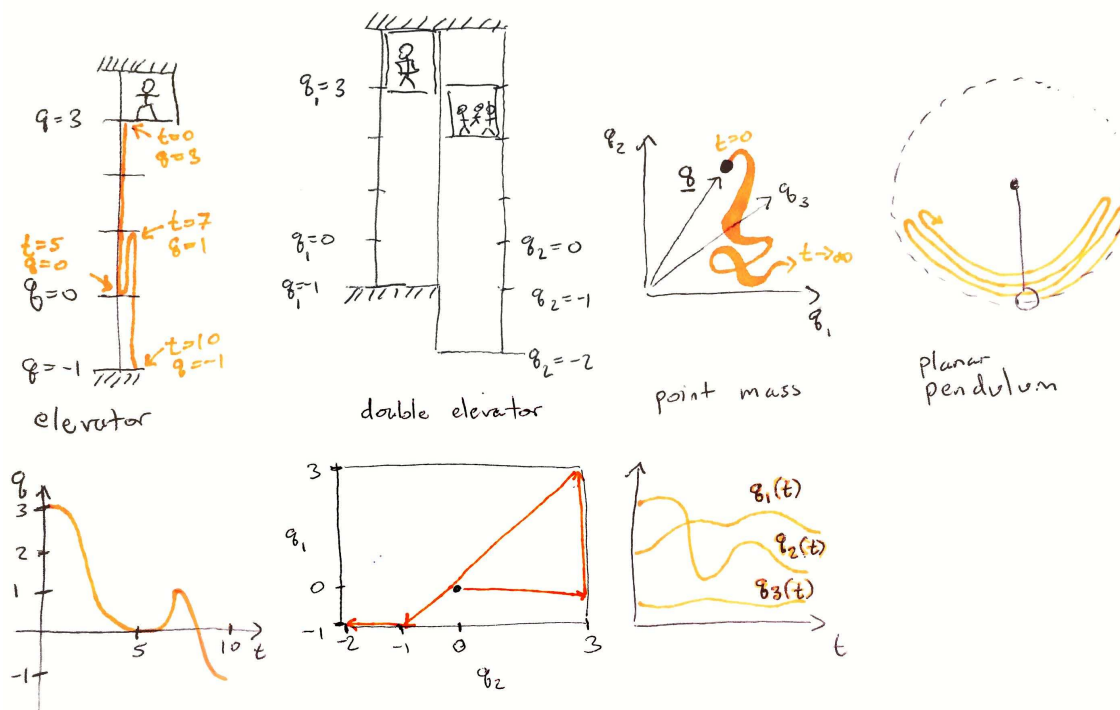 q=3
t=0
q=3
t=7
q=1
t=5
q=0
q=0
t=10
q=-1
q=-1
elevator
q₁=3
q₁=0
q₁=-1
q₂=0
q₂=-1
q₂=-2
double elevator
q₂
t=0
q
q₃
t→∞
q₁
point mass
planar
pendulum
q
3
2
1
-1
5
10
t
3
q₁
0
-1
-2
-1
0
3
q₂
q₁(t)
q₂(t)
q₃(t)
t